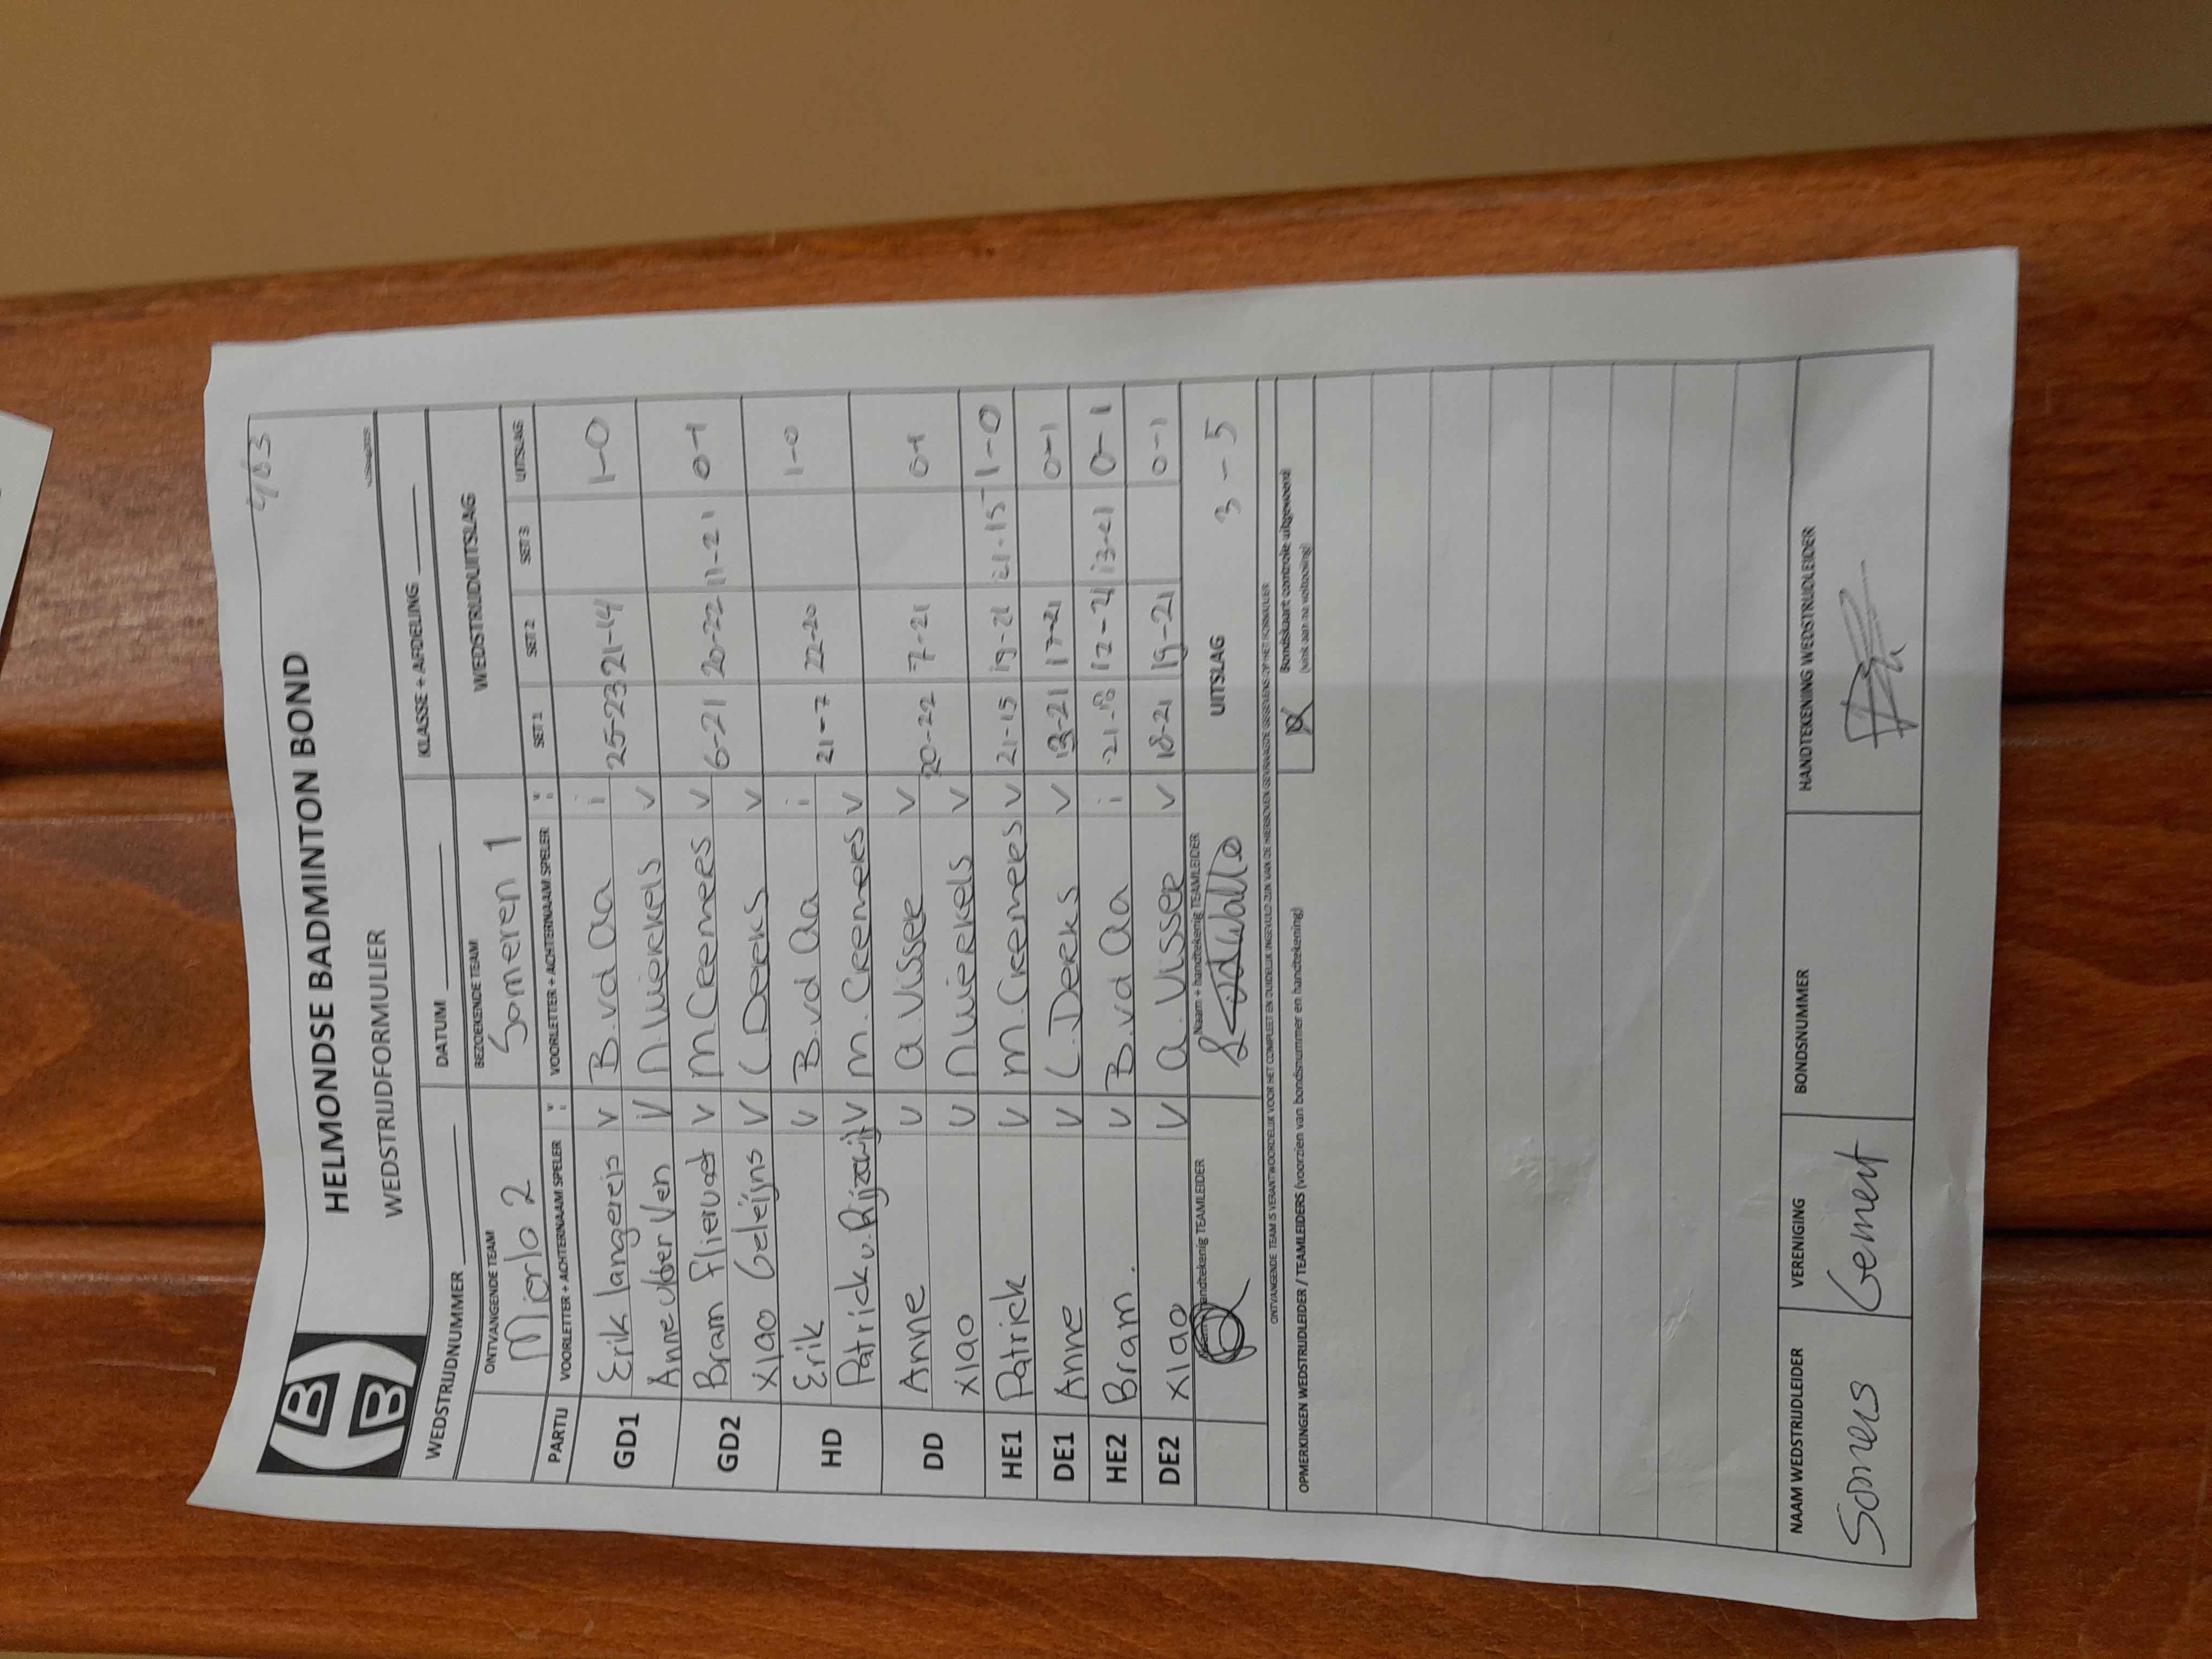 463
HELMONDSE BADMINTON BOND
WEDSTRIJDFORMULIER
WEDSTRIJDNUMMER DATUM KLASSE + AFDELING
ONTVANGENDE TEAM BEZOEKENDE TEAM WEDSTRIJDUITSLAG
Mierlo 2 Someren 1
PARTIJ VOORLETTER + ACHTERNAAM SPELER VOORLETTER + ACHTERNAAM SPELER SET 1 SET 2 SET 3 UITSLAG
GD1 Erik langereis V B. vd Aa i 25-23 21-14 1-0
Anne v/der Ven V N. Wierkels V
GD2 Bram Fliervoet V M Creemers V 6-21 20-22 11-21 0-1
Xiao Geleijns V C. Derks V
HD Erik V B. vd Aa i 21-7 22-20 1-0
Patrick v. V M. Creemers V
DD Anne V A. Visser V 20-22 7-21 0-1
Xiao V N. Wierkels V
HE1 Patrick V M. Creemers V 21-15 19-21 21-15 1-0
DE1 Anne V C. Derks V 13-21 17-21 0-1
HE2 Bram. V B. vd Aa i 21-18 12-21 13-21 0-1
DE2 Xiao V A. Visser V 18-21 19-21 0-1
handtekenig TEAMLEIDER Naam + handtekenig TEAMLEIDER UITSLAG 3-5
ONTVANGENDE TEAM IS VERANTWOORDELIJK VOOR HET COMPLEET EN DUIDELIJK INGEVULD ZIJN VAN DE HIERBOVEN GEVRAAGDE GEGEVENS OP HET FORMULIER
OPMERKINGEN WEDSTRIJDLEIDER / TEAMLEIDERS (voorzien van bondsnummer en handtekening) Bondskaart controle uitgevoerd
(vink aan na voltooiing)
NAAM WEDSTRIJDLEIDER VERENIGING BONDSNUMMER HANDTEKENING WEDSTRIJDLEIDER
Somers Gemert